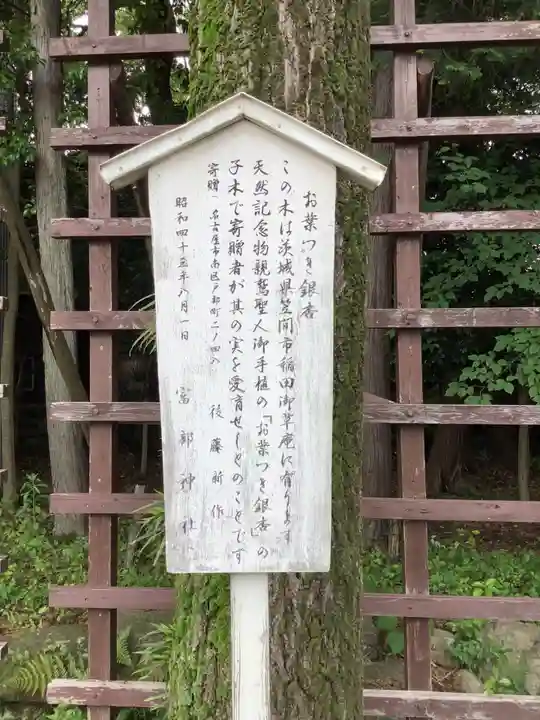 お葉つき銀杏
この木は茨城県笠間市稲田御草庵に有ります
天然記念物親鸞聖人御手植の「お葉つき銀杏」の
子木で寄贈者が其の実を愛育せしとのことです
寄贈 名古屋市南区戸部町二ノ四八
後藤新作
昭和四十五年八月一日
富部神社